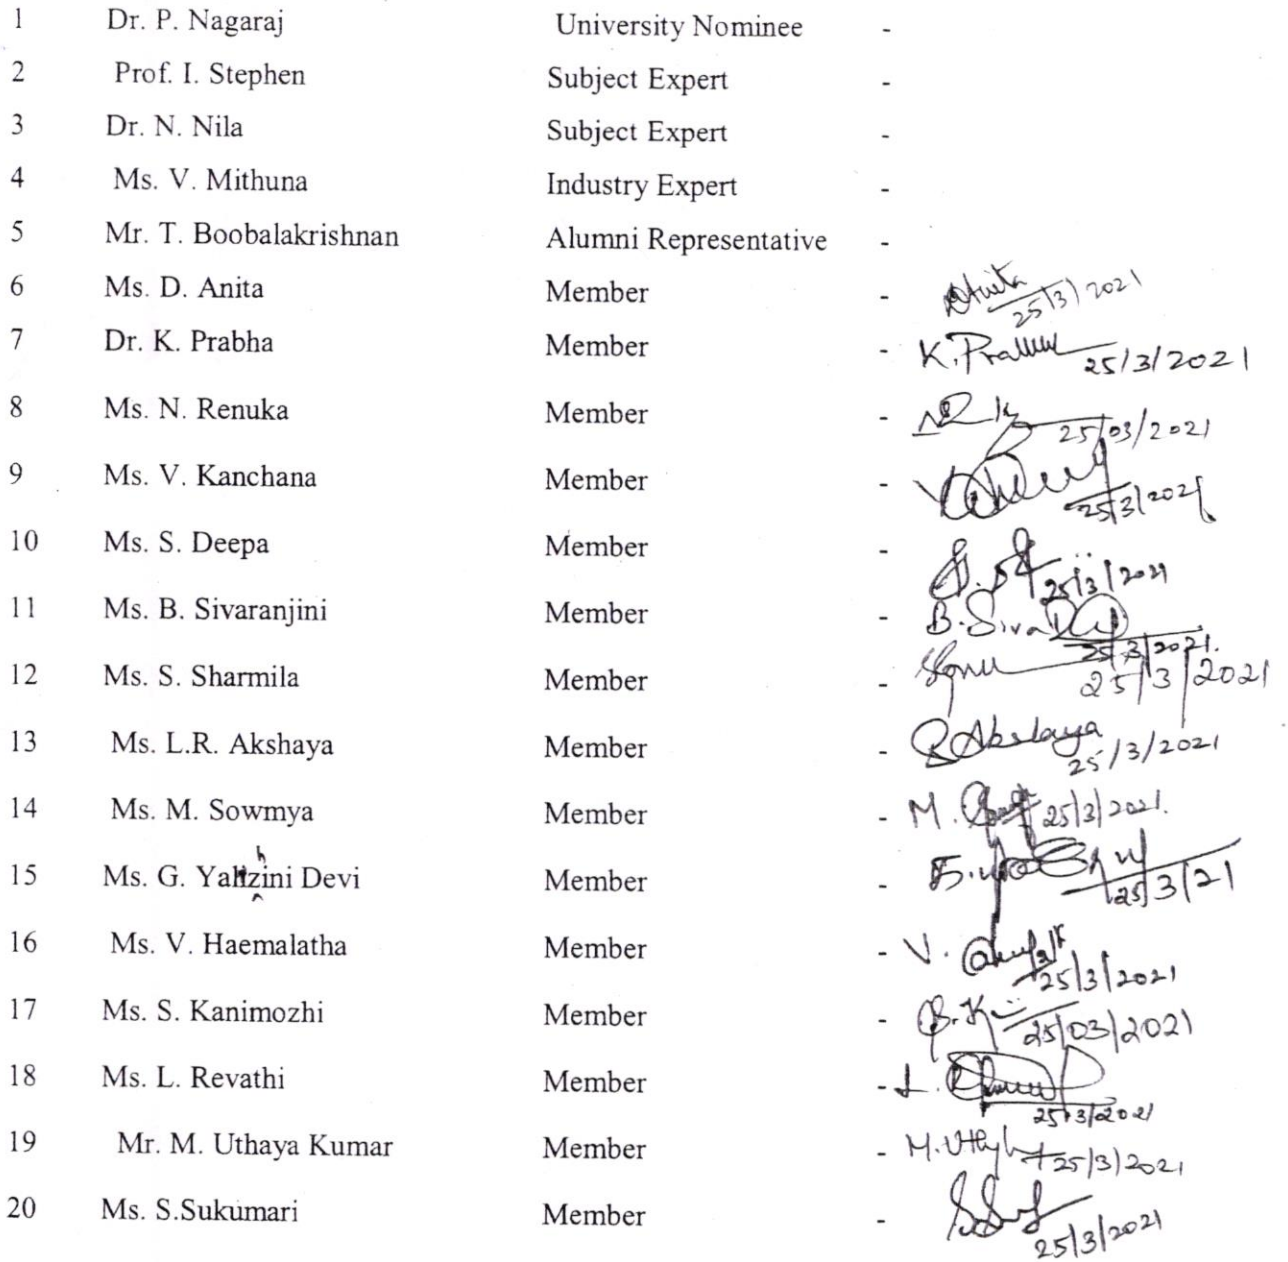 1 Dr. P. Nagaraj University Nominee -
2 Prof. I. Stephen Subject Expert -
3 Dr. N. Nila Subject Expert -
4 Ms. V. Mithuna Industry Expert -
5 Mr. T. Boobalakrishnan Alumni Representative -
6 Ms. D. Anita Member - DAnita 25/3/2021
7 Dr. K. Prabha Member - K. 25/3/2021
8 Ms. N. Renuka Member - 25/03/2021
9 Ms. V. Kanchana Member - 25/3/2021
10 Ms. S. Deepa Member - 25/3/2021
11 Ms. B. Sivaranjini Member - B. Siva 25/3/2021.
12 Ms. S. Sharmila Member - 25/3/2021
13 Ms. L.R. Akshaya Member - Akshaya 25/3/2021
14 Ms. M. Sowmya Member - M. 25/3/2021.
15 Ms. G. Yahzini Devi Member - 25/3/21
16 Ms. V. Haemalatha Member - V. 25/3/2021
17 Ms. S. Kanimozhi Member - 25/03/2021
18 Ms. L. Revathi Member - L. 25/3/2021
19 Mr. M. Uthaya Kumar Member - M. 25/3/2021
20 Ms. S.Sukumari Member - 25/3/2021